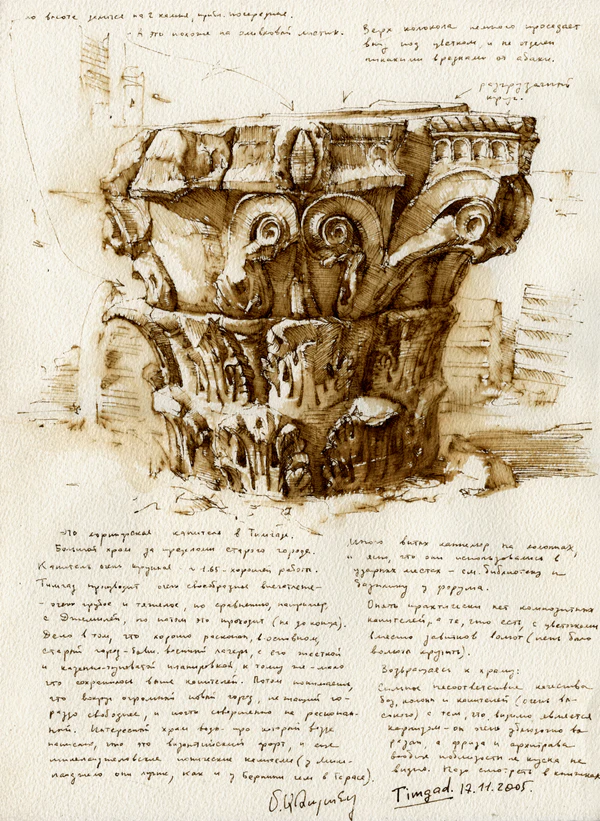 по высоте делится на 2 камня, прибл. посередине.
- А это похоже на оливковый листик.
Верх колокола немного проседает
вниз под цветком, и не отделен
никакими врезками от абаки.
разгрузочный
круг.
Это коринфская капитель в Тимгаде.
Большой храм за пределами старого города.
Капитель очень крупная - ч 1.65 - хорошей работы.
Тимгад производит очень своеобразное впечатление -
- очень грубое и тяжелое, по сравнению, например,
с Джемилей, но потом это проходит (не до конца).
Дело в том, что хорошо раскопан, в основном,
старый город - бывш. военный лагерь, с его жесткой
и казенно-туповатой планировкой, к тому же - мало
что сохранилось выше капителей. Потом понимаешь,
что вокруг огромный новый город, лежащий го-
раздо свободнее, и почти совершенно не раскопан-
ной. Интересный храм воды - про который везде
написано, что это византийский форт, и еще
микеланджеловские ионические капители (у Мике-
ланджело они лучше, как и у Бернини чем в Герасе).
Много витых каннелюр на колоннах,
и ясно, что они использовались в
ударных местах - см. библиотеку и
базилику у форума.
Опять практически нет композитных
капителей, а те, что есть, с цветочками
вместо завитков волют (лень было
волюты крутить).
Возвращаясь к храму:
Сильное несоответствие качества
баз, колонн и капителей (очень вы-
сокого) с тем, что, видимо, является
карнизом - он очень убогого ви
разан, а фриза и архитрава
вообще поблизости ни куска не
видно. Надо смотреть в книжках.
Timgad. 17.11.2005.